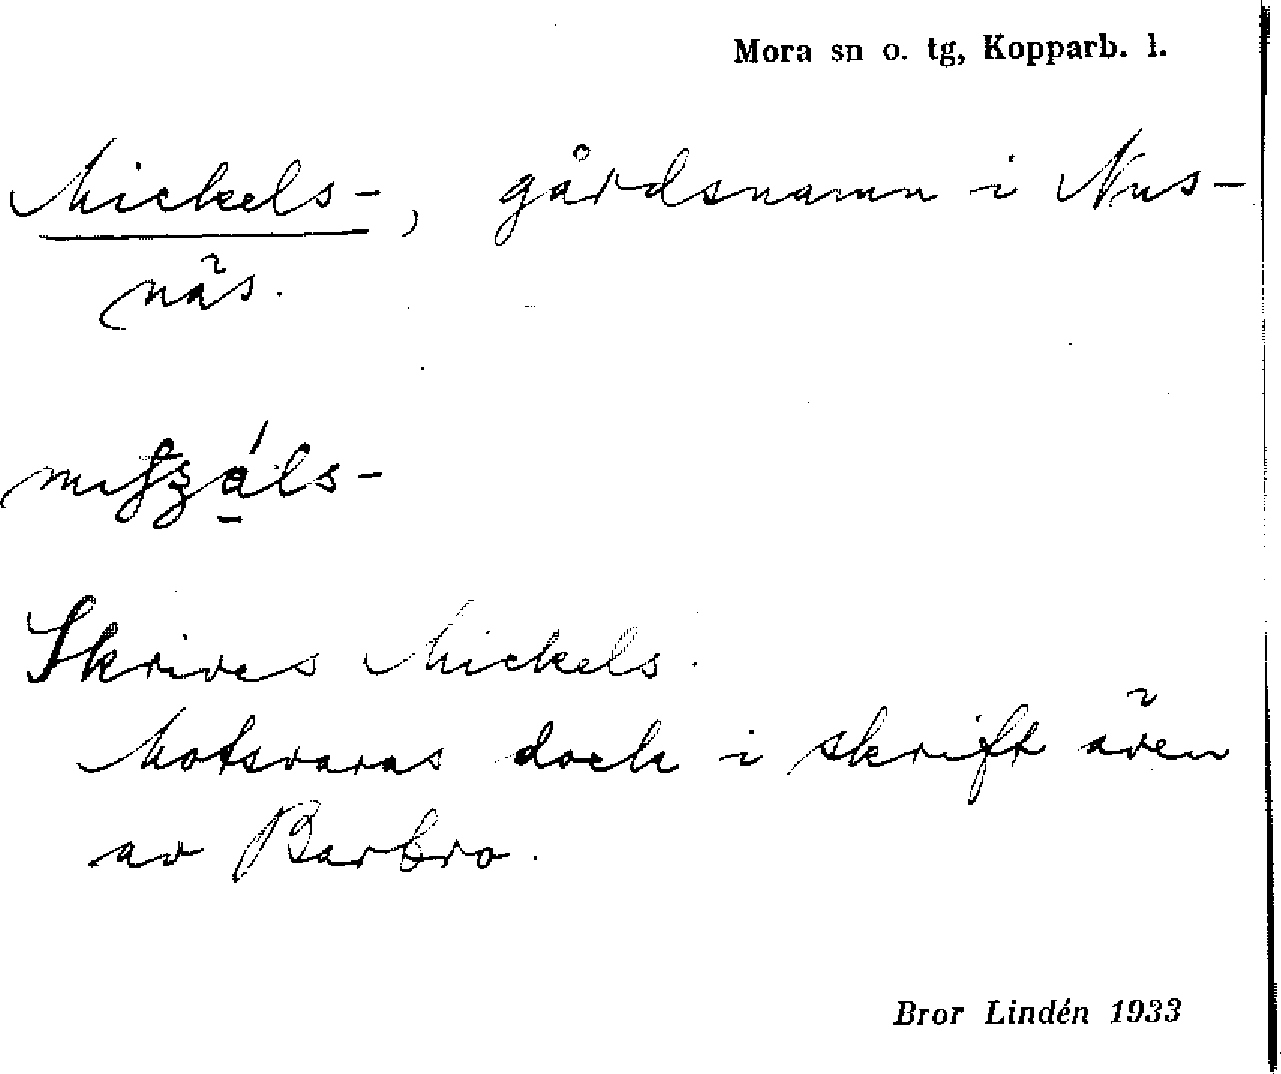 Mora sn o. tg, Kopparb. l.
Mickels-, gårdsnamn i Nus-
näs.
Skrives Mickels.
Motsvaras dock i skrift även
av Barbro.
Bror Lindén 1933